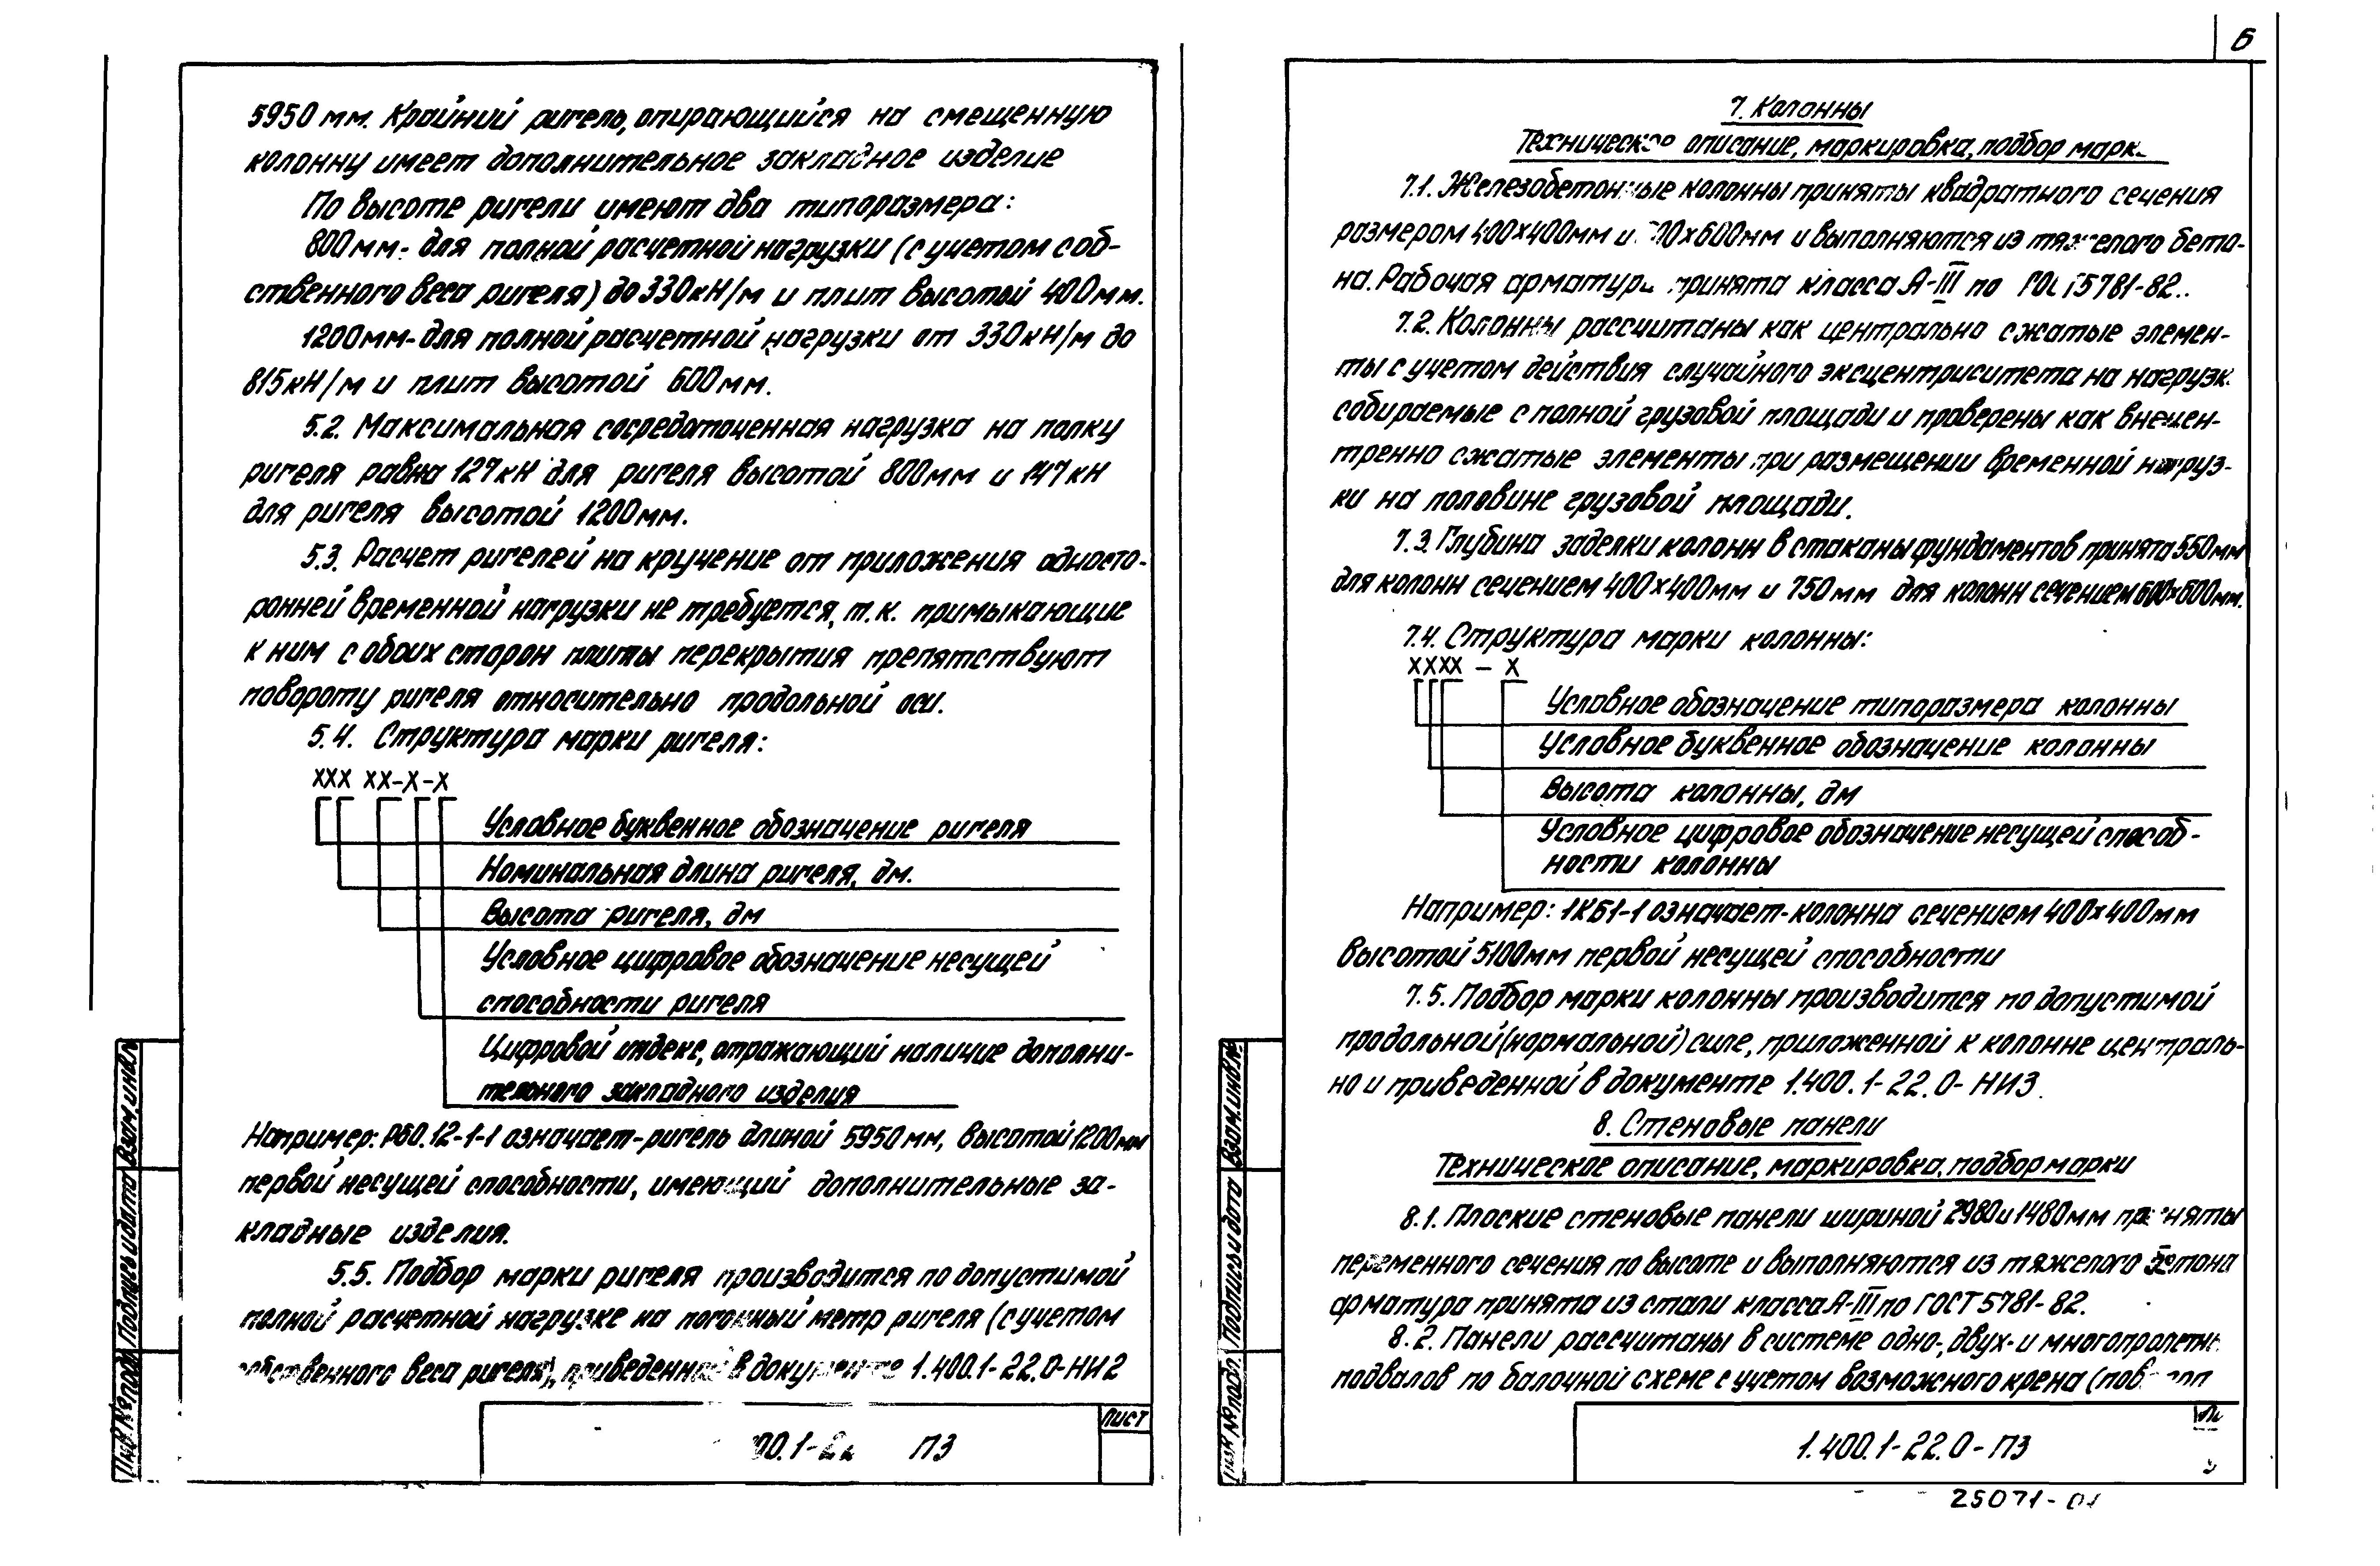 5950 мм. Крайний ригель, опирающийся на смещенную
колонну имеет дополнительное закладное изделие
По высоте ригели имеют два типоразмера:
800мм- для полной расчетной нагрузки (с учетом соб-
ственного веса ригеля) до 330кН/м и плит высотой 400мм.
1200мм-для полной расчетной нагрузки от 330кН/м до
815кН/м и плит высотой 600мм.
5.2. Максимальная сосредоточенная нагрузка на полку
ригеля равна 127кН для ригеля высотой 800мм и 147кН
для ригеля высотой 1200мм.
5.3. Расчет ригелей на кручение от приложения односто-
ронней временной нагрузки не требуется, т.к. примыкающие
к ним с обоих сторон плиты перекрытия препятствуют
повороту ригеля относительно продольной оси.
5.4. Структура марки ригеля:
ХХХ ХХ-Х-Х
Условное буквенное обозначение ригеля
Номинальная длина ригеля, дм.
Высота ригеля, дм
Условное цифровое обозначение несущей
способности ригеля
Цифровой индекс, отражающий наличие дополни-
тельного закладного изделия
Например: Р60.12-1-1 означает-ригель длиной 5950мм, высотой 1200мм
первой несущей способности, имеющий дополнительные за-
кладные изделия.
5.5. Подбор марки ригеля производится по допустимой
полной расчетной нагрузке на погонный метр ригеля (с учетом
собственного веса ригеля), приведенной в документе 1.400.1-22.0-НИ2
ПЗ
Лист
Инв № подл Подпись и дата Взам.инв.№
6
7. Колонны
Техническое описание, маркировка, подбор марк.
7.1. Железобетонные колонны приняты квадратного сечения
размером 400×400мм и 600×600мм и выполняются из тяжелого бето-
на. Рабочая арматура принята класса А-III по ГОСТ 5781-82.
7.2. Колонны рассчитаны как центрально сжатые элемен-
ты с учетом действия случайного эксцентриситета на нагрузк.
собираемые с полной грузовой площади и проверены как внецен-
тренно сжатые элементы при размещении временной нагруз-
ки на половине грузовой площади.
7.3. Глубина заделки колонн в стаканы фундаментов принята 550мм
для колонн сечением 400×400мм и 750мм для колонн сечением 600×600мм.
7.4. Структура марки колонны:
ХХХХ - Х
Условное обозначение типоразмера колонны
Условное буквенное обозначение колонны
Высота колонны, дм
Условное цифровое обозначение несущей способ-
ности колонны
Например: 1К51-1 означает-колонна сечением 400×400мм
высотой 5100мм первой несущей способности
7.5. Подбор марки колонны производится по допустимой
продольной (нормальной) силе, приложенной к колонне централь-
но и приведенной в документе 1.400.1-22.0-НИ3.
8. Стеновые панели
Техническое описание, маркировка, подбор марки
8.1. Плоские стеновые панели шириной 2980 и 1480мм приняты
переменного сечения по высоте и выполняются из тяжелого бетона
арматура принята из стали класса А-III по ГОСТ 5781-82.
8.2. Панели рассчитаны в системе одно-, двух- и многопролетн
подвалов по балочной схеме с учетом возможного крена (поворот
1.400.1-22.0-ПЗ
Инв № подл. Подпись и дата Взам.инв.№
25071-01